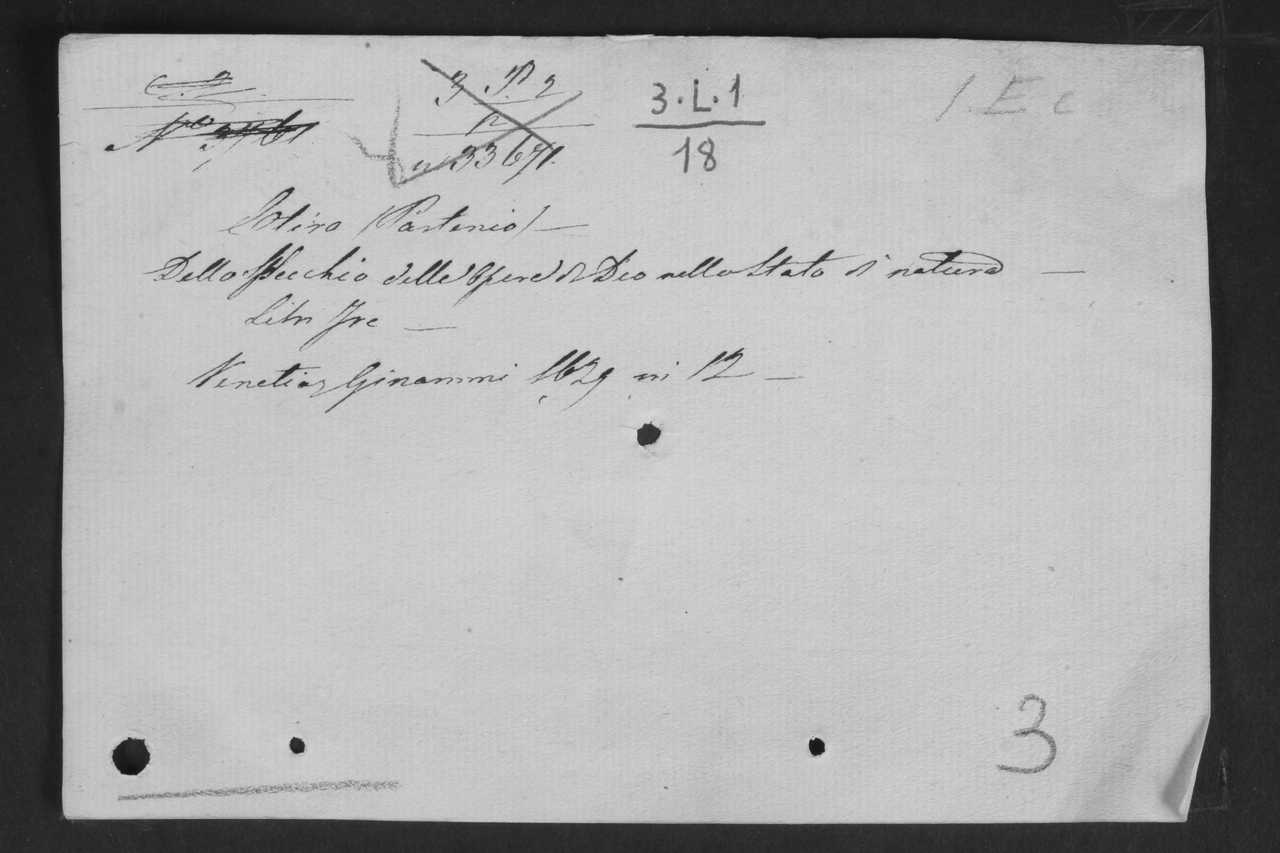 C. 2
3 P. 2
3.L.1
18
n 33671.
Etiro (Partenio)
Dello Specchio delle opere di Dio nello Stato di natura
Libri Tre
Venetia Ginammi 1629 in 12
3